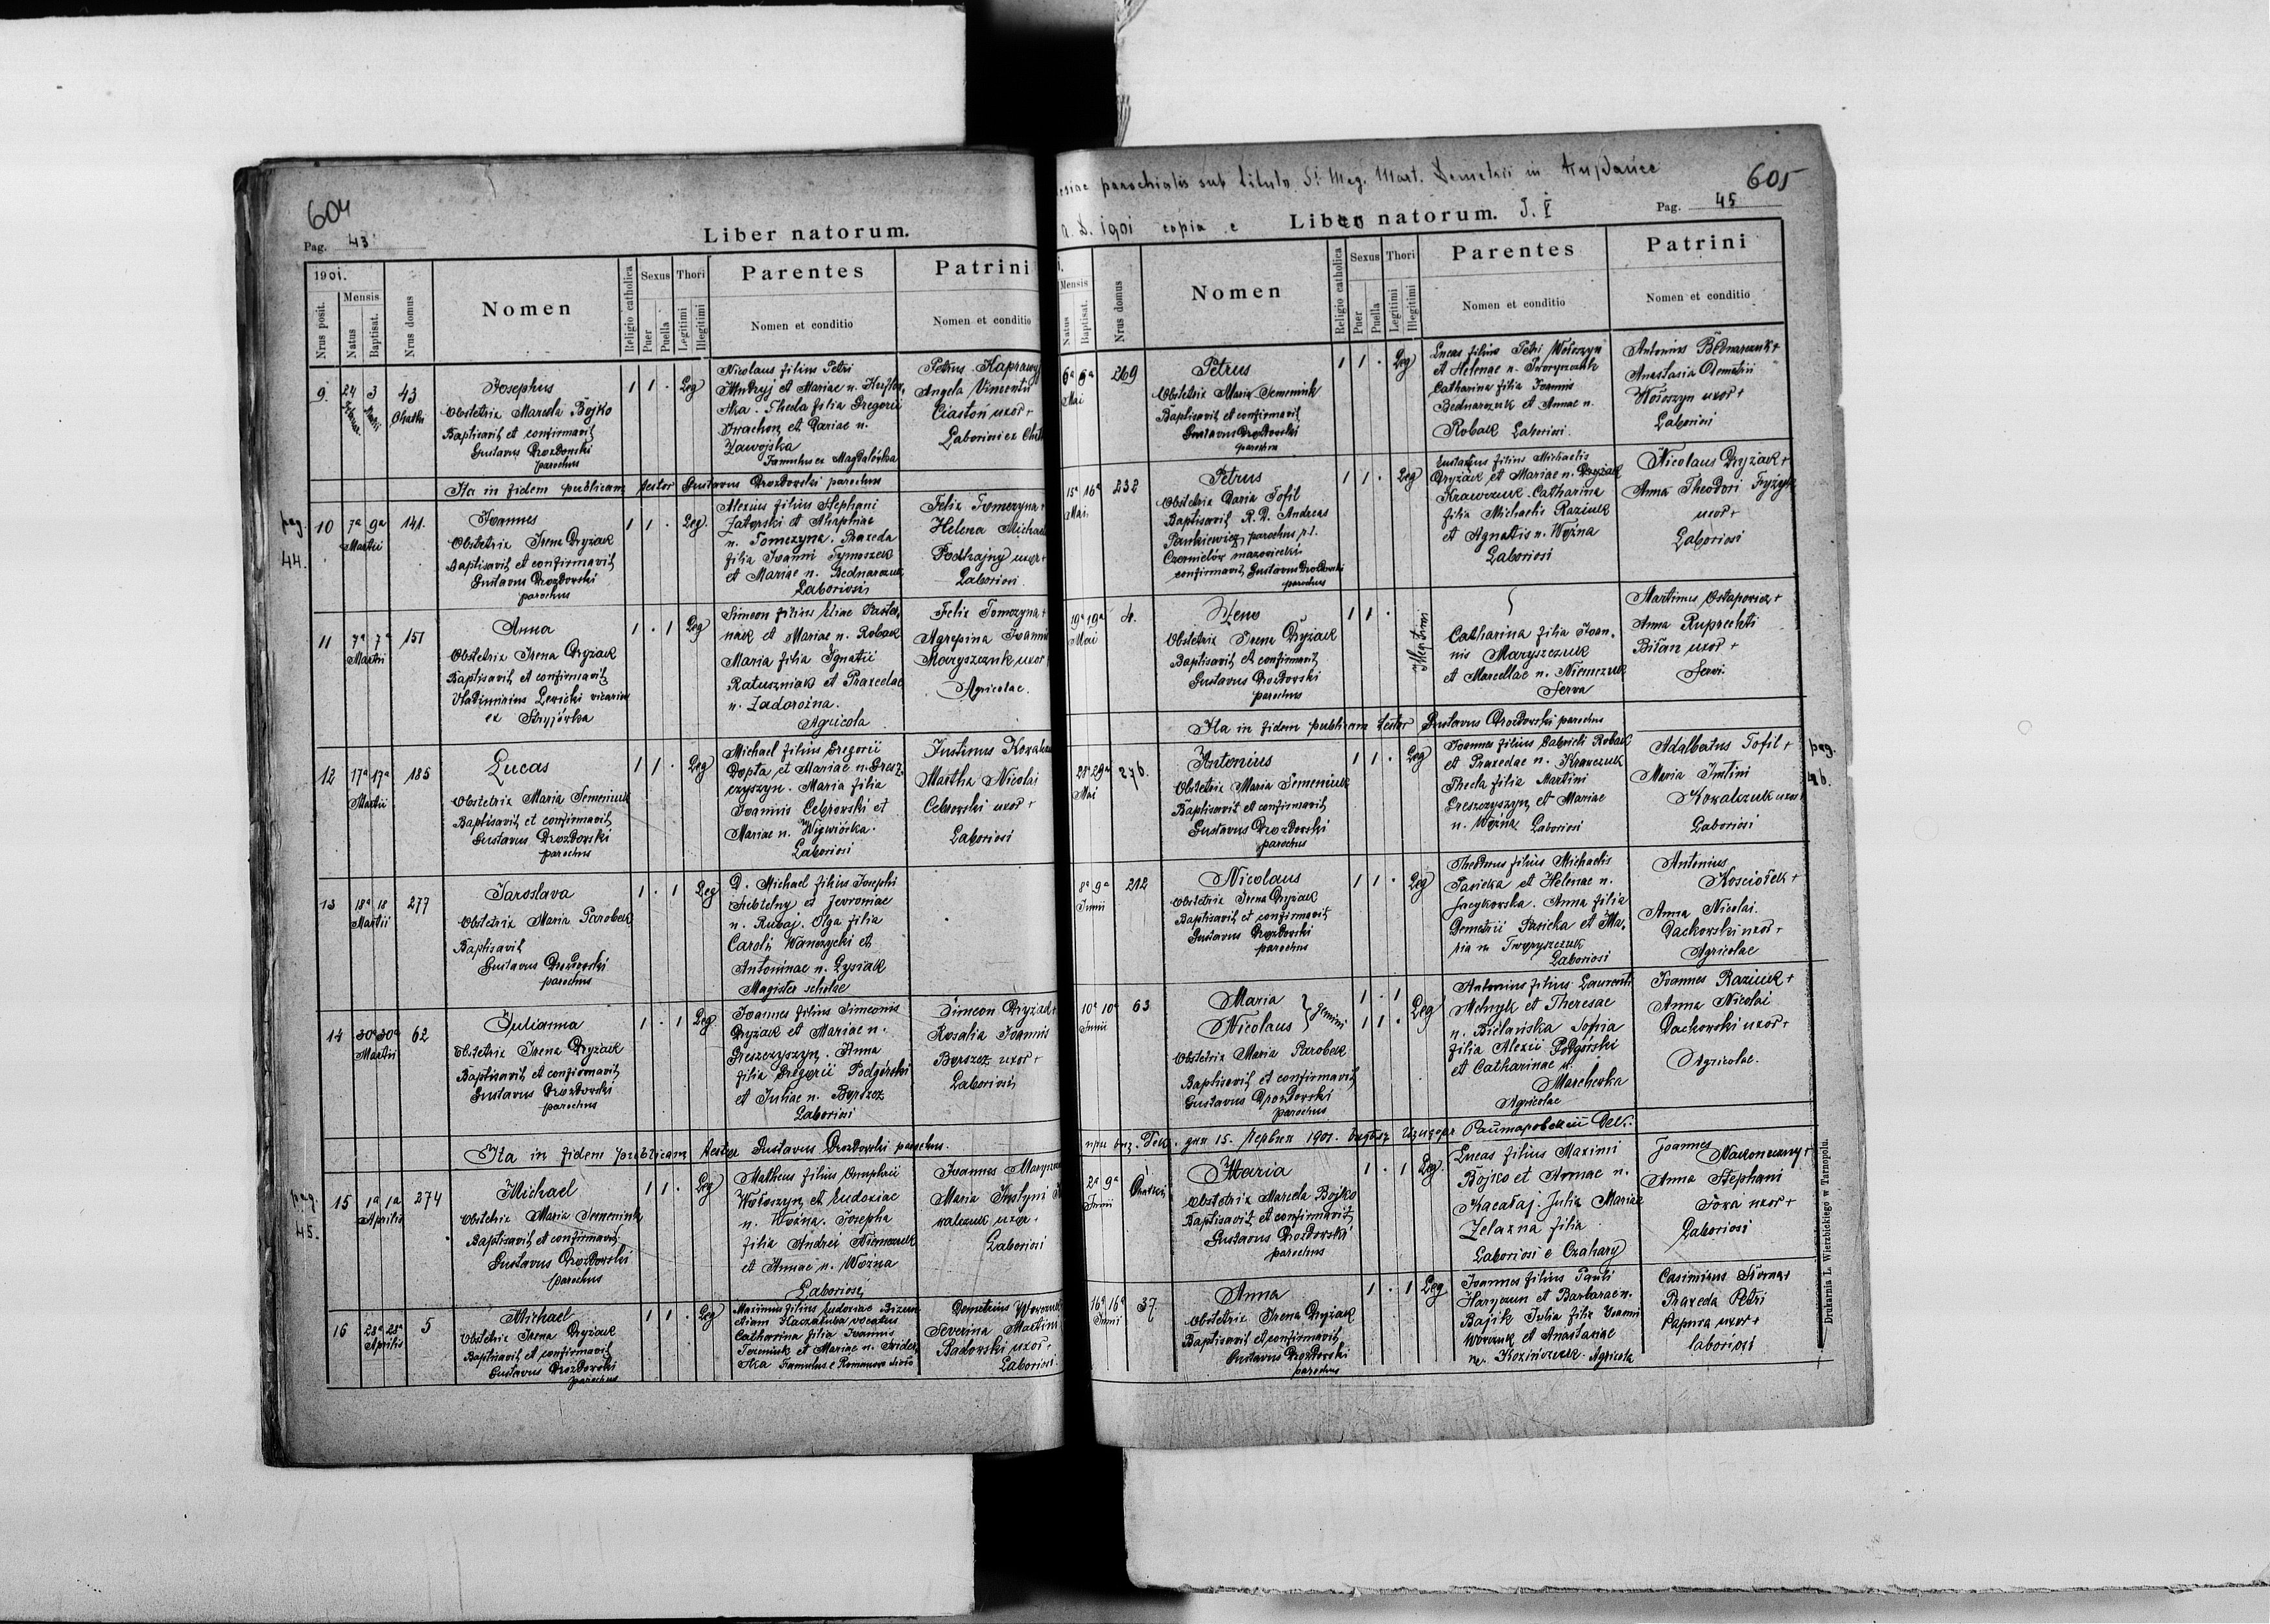 604
Pag. 43
Liber natorum.
1901.
Nrus posit.
Mensis
Natus
Baptisat.
Nrus domus
Nomen
Religio catholica
Sexus
Puer
Puella
Thori
Legitimi
Illegitimi
Parentes
Nomen et conditio
Patrini
Nomen et conditio
9. 24 3 43
Josephus
Obstetrix Marcela Bojko
Baptisavit et confirmavit
Gustavus Drozdowski
parochus
1 1 . Leg
Nicolaus filius Petri
Thecla filia Gregorii
Zawojska
Famulus ex Magdalówka
Petrus
Angela
Ciastoń uxor +
Ita in fidem publicam testor Gustavus Drozdowski parochus
pag. 44.
10 7a 9a Martii 141.
Joannes
Obstetrix Irena Dryżak
Baptisavit et confirmavit
Gustavus Drozdowski
parochus
1 1 . Leg.
Alexius filius Stephani
Zatorski et
n. Tomczyna. Praxeda
filia Joanni Tymoszek
et Mariae n. Bednarczuk
Laboriosi
Felix Tomczyna +
Helena
Podhajny uxor +
Laboriosi.
11 7a 7a Martii 151
Anna
Obstetrix Irena Dryżak
Baptisavit et confirmavit
Vladimirius Lewicki vicarius
ex Stryjówka
1 . 1 Leg
Simeon filius Eliae
et Mariae n. Robak
Maria filia Ignatii
Ratuszniak et Praxedae
n. Zadorożna.
Agricola
Felix Tomczyna +
Agrepina
Maryszczuk uxor
Agricolae.
12 17a 17a Martii 185
Lucas
Obstetrix Maria Semeniuk
Baptisavit et confirmavit
Gustavus Drozdowski
parochus
1 1 . Leg
Michael filius Gregorii
Dopta et Mariae n. Gresz,
czyszyn. Maria filia
Joannis Cebrowski et
Mariae n. Wiewiórka.
Laboriosi
Justinus
Martha Nicolai
Cebrowski uxor +
Laboriosi
13 18a 18 Martii 277
Jaroslava
Obstetrix Maria Parobek
Baptisavit
Gustavus Drozdowski
parochus
1 . 1 Leg
D. Michael filius Josephi
n. Olga filia
Caroli Wanczycki et
Antoninae n. Łysiak
Magister scholae
14 30a 30a Martii 62
Julianna
Obstetrix Irena Dryżak
Baptisavit et confirmavit
Gustavus Drozdowski
parochus
1 . 1 Leg
Joannes filius Simeonis
Dryżak et Mariae n.
Greszczyszyn. Anna
filia Gregorii Podgórski
et Juliae n. Borszcz
Laboriosi
Simeon Dryżak +
Rosalia Joannis
Borszcz uxor +
Laboriosi
Ita in fidem publicam testor Gustavus Drozdowski parochus.
pag. 45.
15 1a 1a Aprilis 274
Michael
Obstetrix Maria Semeniuk
Baptisavit et confirmavit
Gustavus Drozdowski
parochus
1 1 . Leg
Matheus filius Onuphrii
Wołoszyn et Eudoxiae
n. Woźna. Josepha
filia Andrei Niemczuk
et Annae n. Woźna
Laboriosi
Joannes
Maria
uxor +
Laboriosi
16 28a 28a Aprilis 5
Michael
Obstetrix Irena Dryżak
Baptisavit et confirmavit
Gustavus Drozdowski
parochus
1 1 . Leg
Maximus filius Eudoxiae
etiam vocatus
Catharina filia Joannis
et Mariae n.
Famulus e
Demetrius
Severina Martini
Sadowski uxor +
Laboriosi
605
parochialis sub titulo St. Meg. Mart. Demetrii in
a. D. 1901 copia e Liber natorum. T. V
Pag. 45
Mensis
Natus
Baptisat.
Nrus domus
Nomen
Religio catholica
Sexus
Puer
Puella
Thori
Legitimi
Illegitimi
Parentes
Nomen et conditio
Patrini
Nomen et conditio
6a 6a Mai 269
Petrus
Obstetrix Maria Semeniuk
Baptisavit et confirmavit
Gustavus Drozdowski
parochus
1 1 . Leg
Lucas filius Petri Wołoszyn
et Helenae n.
Catharina filia Joannis
Bednarczuk et Annae n.
Robak Laboriosi.
Antonius Bednarczuk +
Anastasia Demetrii
Wołoszyn uxor +
Laboriosi
15a 16a Mai. 232
Petrus
Obstetrix Daria Tofil
Baptisavit R. D. Andreas
Pankiewicz parochus pl.
Czernielów mazowiecki
confirmavit Gustavus Drozdowski
parochus
1 1 . Leg
Eustachius filius Michaelis
Dryżak et Mariae n. Dryżak
Krawczuk. Catharina
filia Michaelis Raziuk
et Agnetis n. Woźna
Laboriosi
Nicolaus Dryżak +
Anna Theodori
uxor +
Laboriosi
19a 19a Mai 4.
Zeno
Obstetrix Irena Dryżak
Baptisavit et confirmavit
Gustavus Drozdowski
parochus
1 1 .
Catharina filia Joan,
nis Maryszczuk
et Marcellae n. Niemczuk
Serva
Martinus Ostapowicz +
Anna Ruprechti
Bilan uxor +
Servi.
Ita in fidem publicam testor Gustavus Drozdowski parochus
28a 29a Mai 276.
Antonius
Obstetrix Maria Semeniuk
Baptisavit et confirmavit
Gustavus Drozdowski
parochus
1 1 . Leg
Joannes filius Gabrieli Robak
et Praxedae n. Krawczuk
Thecla filia Martini
Greszczyszyn et Mariae
n. Woźna Laboriosi
Adalbertus Tofil +
Maria Justini
Kowalczuk uxor +
Laboriosi
pag. 46.
8a 9a Junii 212
Nicolaus
Obstetrix Irena Dryżak
Baptisavit et confirmavit
Gustavus Drozdowski
parochus
1 1 . Leg
Theodorus filius Michaelis
Pasieka et Helenae n.
Jacykowska. Anna filia
Demetrii Pasieka et Ma,
ria n.
Laboriosi
Antonius
Kościołek +
Anna Nicolai.
Dackowski uxor +
Agricolae
10a 10a Junii 63
Maria
Nicolaus } Gemini
Obstetrix Maria Parobek
Baptisavit et confirmavit
Gustavus Drozdowski
parochus
1 . 1
1 1 . Leg
Antonius filius Laurentii
Melnyk et Theresae
n. Bielańska Sofia
filia Alexii Podgórski
et Catharinae n.
Marchewka
Agricolae
Joannes Raziuk +
Anna Nicolai
Dackowski uxor +
Agricolae.
дня 15. Червня 1901.
2a 9a Junii
Maria
Obstetrix Marcela Bojko
Baptisavit et confirmavit
Gustavus Drozdowski
parochus
1 . 1 Leg.
Lucas filius Maximi
Bojko et Annae n.
Kacałaj. Julia Mariae
Żelazna filia
Laboriosi e Czahary
Joannes
Anna Stephani
Sowa uxor +
Laboriosi
16a 16a Junii 37.
Anna
Obstetrix Irena Dryżak
Baptisavit et confirmavit
Gustavus Drozdowski
parochus
1 . 1 Leg
Joannes filius Pauli
Haryzun et Barbarae n.
Bajik Julia filia Joanni
Worczuk et Anastasiae
n. Agricola
Casimirus
Praxeda Petri
uxor +
laboriosi
Drukarnia L. Wierzbickiego w Tarnopolu.